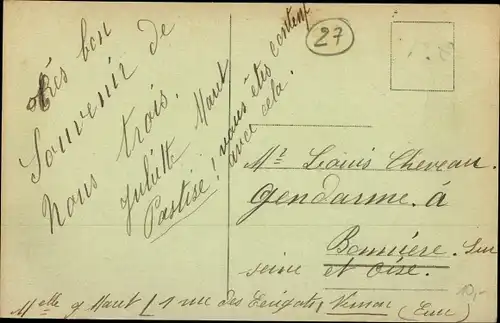 27
Très bon
Souvenir de
Nous trois.
Juliette Maret
Partisé! vous êtes content
avec cela.
Mr Louis Cheveau
Gendarme à
Bonnière. Sur
seine et Oise.
Melle J Maret / 1 rue des Vernon (Eure)
10,-